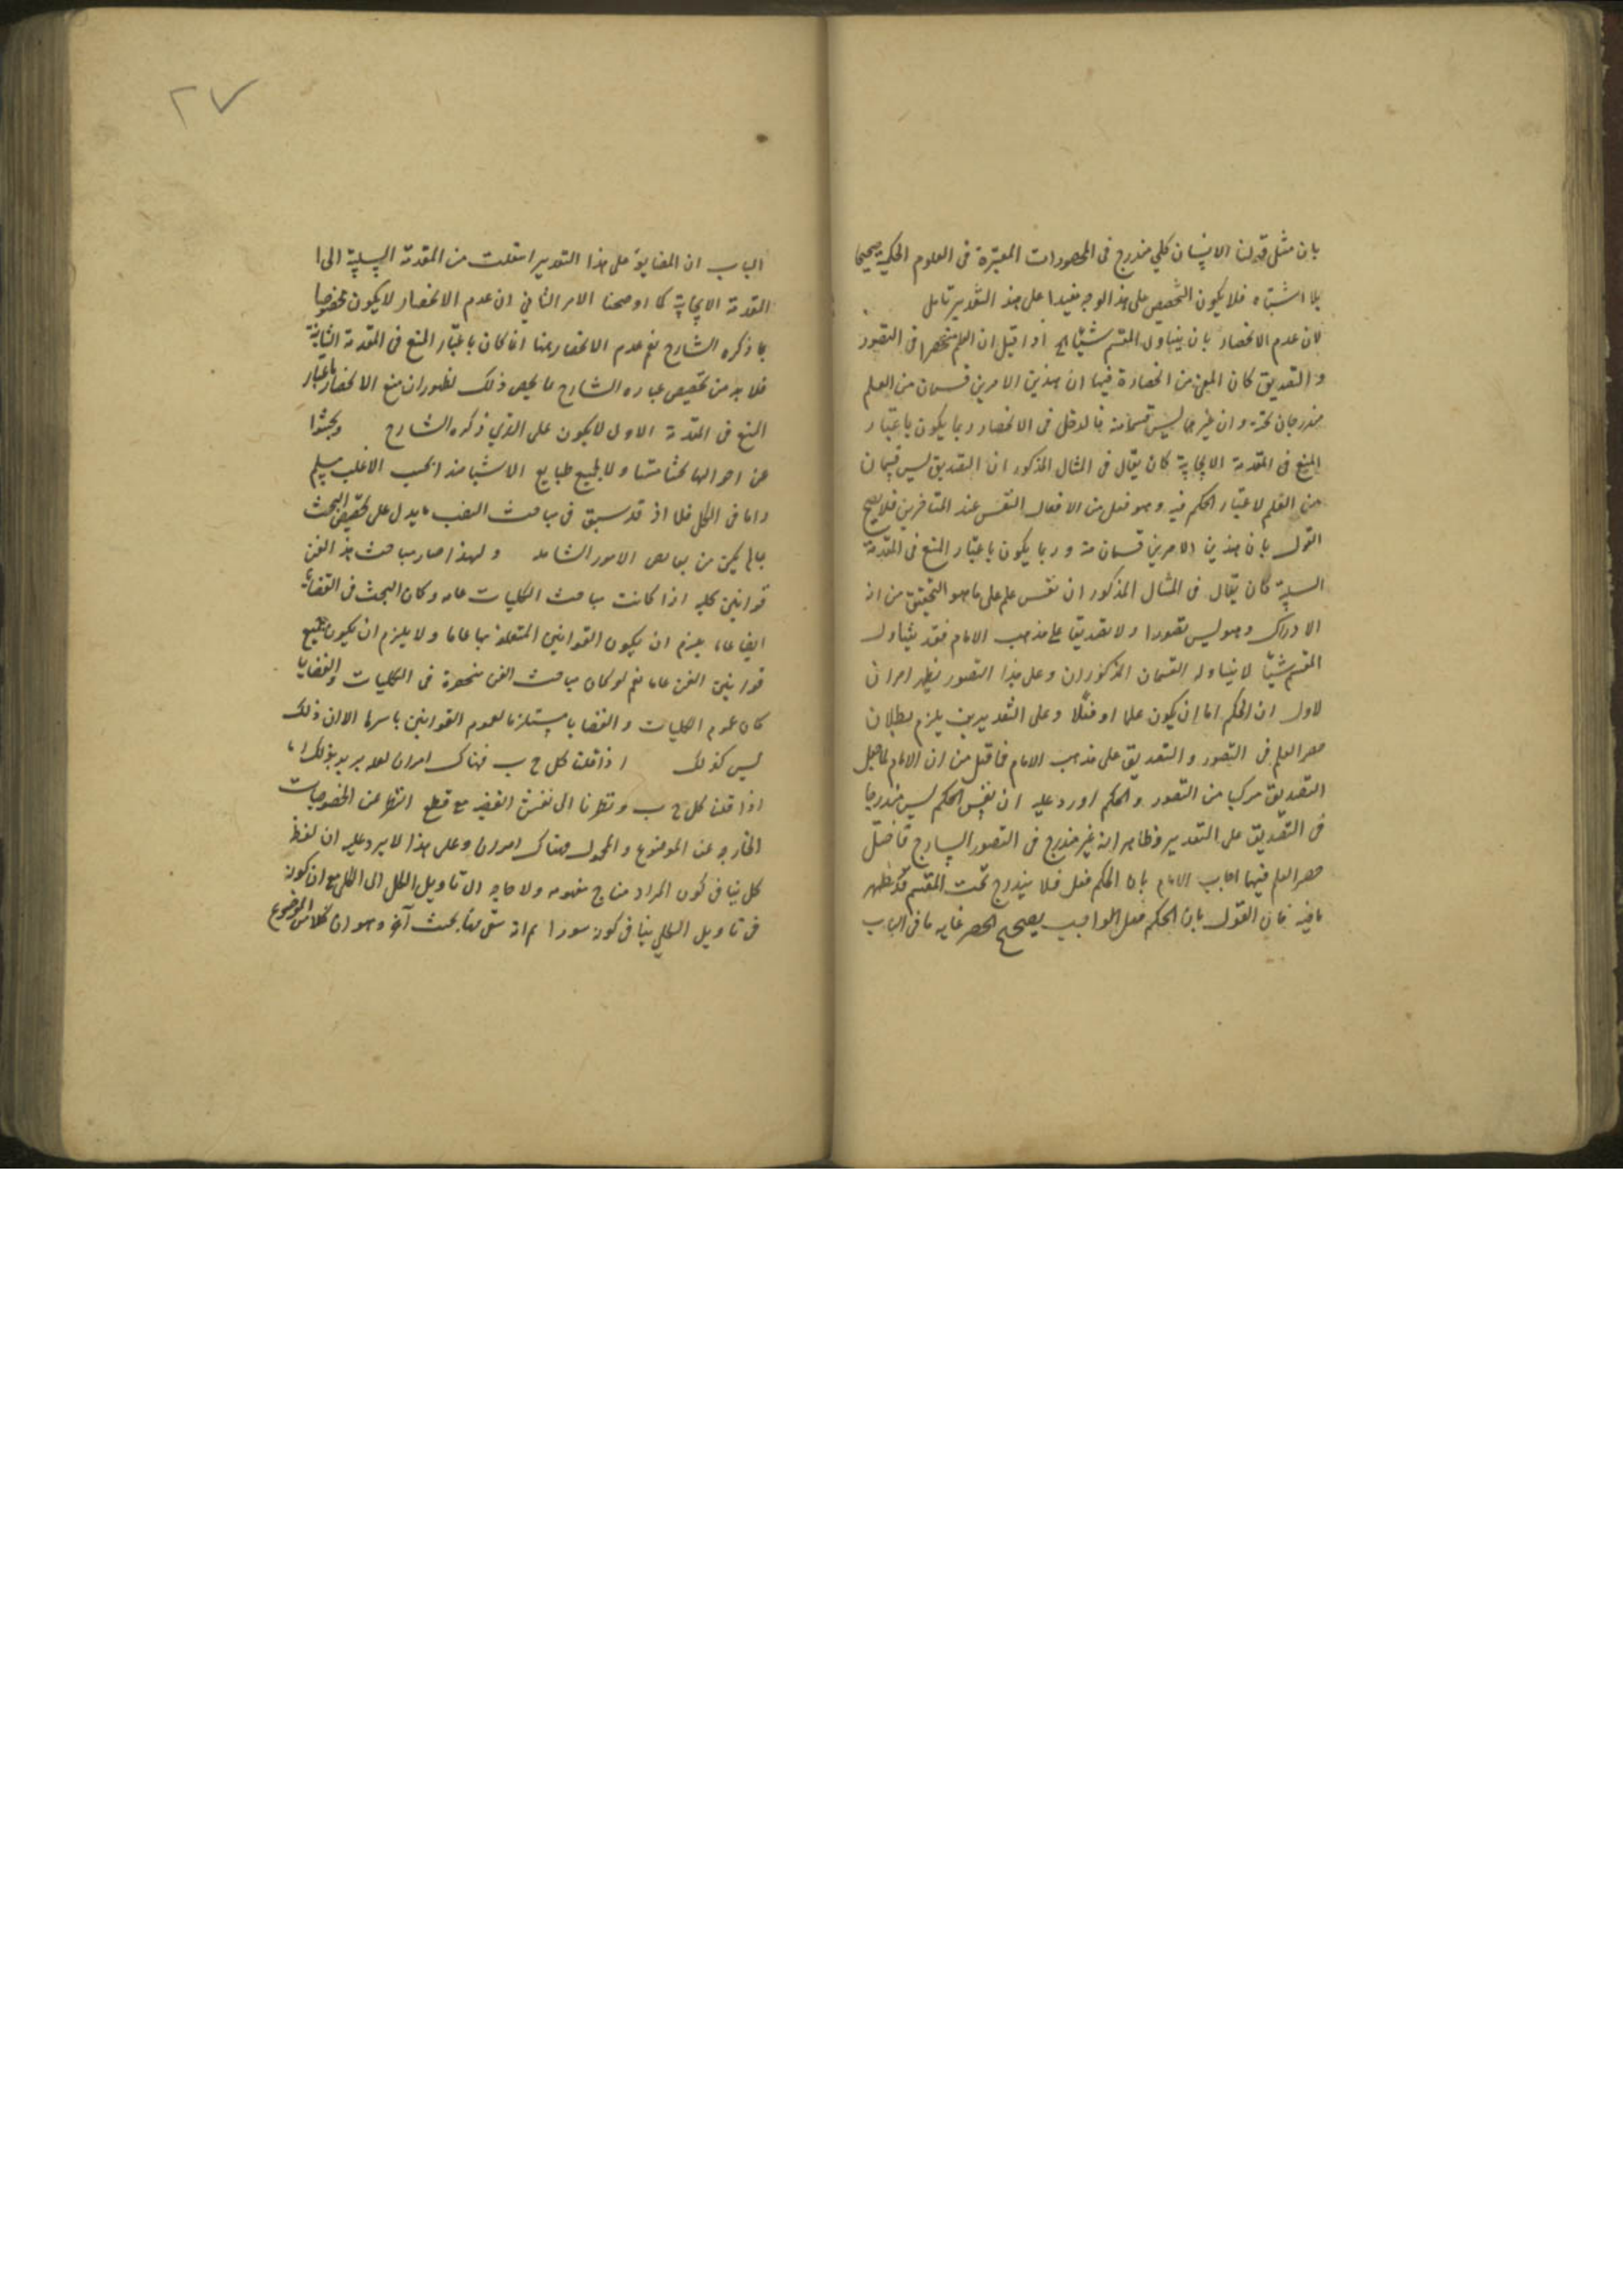 بان مثل قولنا الانسان كلي مندرج فى المحصورات المعتبرة فى العلوم الحكمية صحيحا
بلا اشتباه فلا يكون التخصيص على هذا الوجه مفيدا على هذا التقدير تامل
كان عدم الانحصار بان يتناول المقسم شيئا الخ اذا قيل ان العلم منحصر فى التصور
و التصديق كان المعنى من انحصاره فيهما ان هذين الامرين قسمان من العلم
مندرجان تحته و ان غيرهما ليس قسما منه فالدخل فى الانحصار ربما يكون باعتبار
المنع فى المقدمة الايجابية كان يقال فى المثال المذكور ان التصديق ليس قسما
من العلم لاعتبار الحكم فيه وهو فعل من الافعال النفس عند المتاخرين فلا يصح
القول بان هذين الامرين قسمان منه و ربما يكون باعتبار المنع فى المقدمة
السلبية كان يقال فى المثال المذكور ان نفس علم على ما هو التحقيق من انه
الادراك وهو ليس تصورا ولا تصديقا على مذهب الامام فقد يتناول
المقسم شيئا لا يتناوله القسمان المذكوران وعلى هذا التصور يظهر امران
لاول ان الحكم اما ان يكون علما او فعلا وعلى التقديرين يلزم بطلان
حصر العلم فى التصور و التصديق على مذهب الامام فما قيل من ان الامام لما جعل
التصديق مركبا من التصور والحكم اورد عليه ان نفس الحكم ليس مندرجا
فى التصديق على التقدير وظاهر انه غير مندرج فى التصور الساذج فاختل
حصر العلم فيهما اجاب الامام بان الحكم فعل فلا يندرج تحت المقسم قد ظهر
ما فيه فان القول بان الحكم فعل الواجب يصحح الحصر غاية ما فى الباب
٢٧
الباب ان المضايقة على هذا التقدير انتقلت من المقدمة السلبية الى
المقدمة الايجابية كما اوضحنا الامر الثانى ان عدم الانحصار لا يكون مخصوصا
بما ذكره الشارح نعم عدم الانحصار هنا انما كان باعتبار المنع فى المقدمة الثانية
فلا بد من تخصيص عبارة الشارح بما يخص ذلك لظهور ان منع الانحصار باعتبار
المنع فى المقدمة الاولى لا يكون على الذي ذكره الشارح وبحثوا
عن احوالها بحثا متناولا لجميع طبايع الاشيا هذا بحسب الاغلب مسلم
واما فى الكل فلا اذ قد سبق فى مباحث ما يدل على تحقيق البحث
بما لم يكن من الامور الشاملة ولهذا صار مباحث هذا الفن
قوانين كلية اذا كانت مباحث الكليات عامة وكان البحث فى القضايا
ايضا عاما يلزم ان يكون القوانين المتعلقة بها عاما ولا يلزم ان يكون جميع
قوانين الفن عاما نعم لو كان مباحث الفن منحصرة فى الكليات والقضايا
كان عموم الكليات و القضايا مستلزما لعموم القوانين باسرها الا ان ذلك
ليس كذلك اذا قلنا كل ج ب فهناك امران لعله يريد بذلك
اذا قلنا كل ج ب و نظرنا الى نفس القضية مع قطع النظر عن الخصوصيات
الخارجة عن الموضوع و المحمول فهناك امران وعلى هذا لا يرد عليه ان لفظ
كل ينافى كون المراد من ج مفهومه ولا حاجة الى تاويل الكل الى الكلى مع ان كونه
فى تاويل الكلي ينافى كونه سورا بحث آخر وهو ان كلا من الموضوع